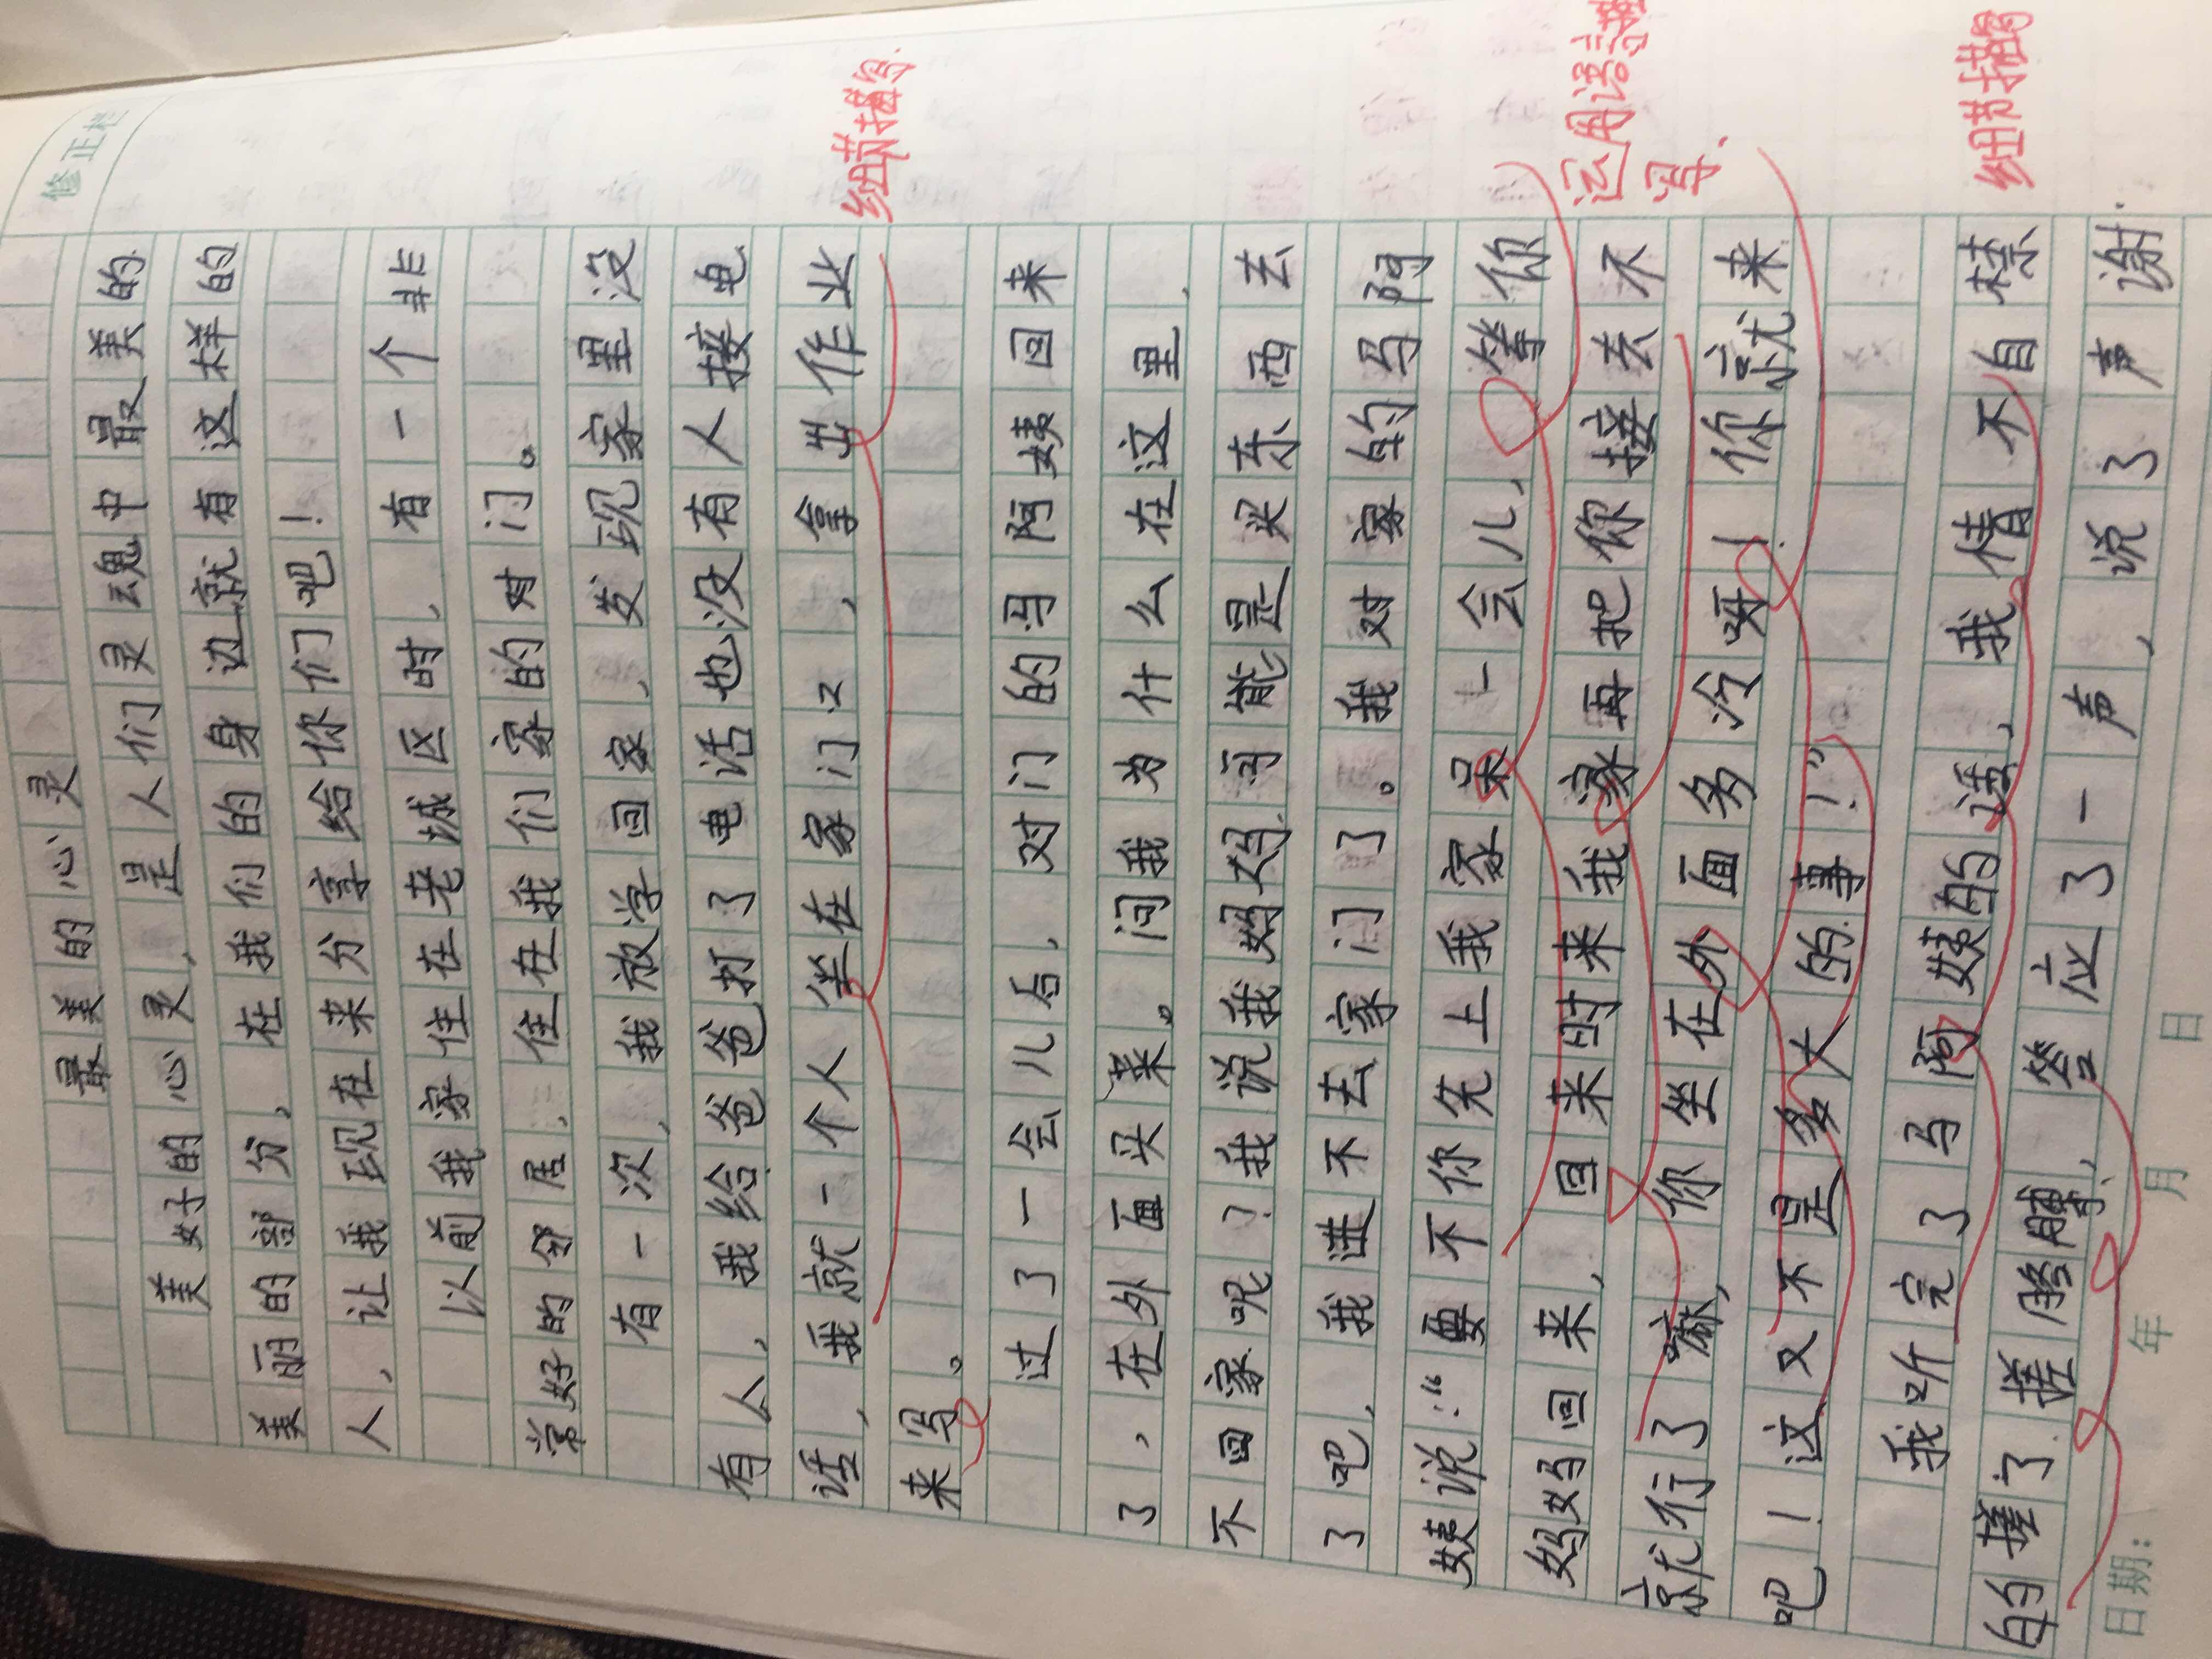 修正栏
最美的心灵
美好的心灵，是人们灵魂中最美的
美丽的部分，在我们的身边就有这样的
人，让我现在来分享给你们吧！
以前我家住在老城区时，有一个非
常好的邻居，住在我们家的对门。
有一次，我放学回家，发现家里没
有人，我给爸爸打了电话也没有人接电
话，我就一个人坐在家门口，拿出作业
细节描写
来写。
过了一会儿后，对门的马阿姨回来
了，在外面买菜。问我为什么在这里，
不回家呢？我说我妈妈可能是买东西去
了吧，我进不去家门了。我对家的马阿
姨说：“要不你先上我家呆一会儿，等你
妈妈回来，回来时来我家再把你接去不
运用语言描写.
就行了嘛，你坐在外面多冷呀！你就来
吧！这又不是多大的事！”
我听完了马阿姨的话，我情不自禁
细节描写
的搓了搓胳膊，答应了一声，说了声谢
日期： 年 月 日